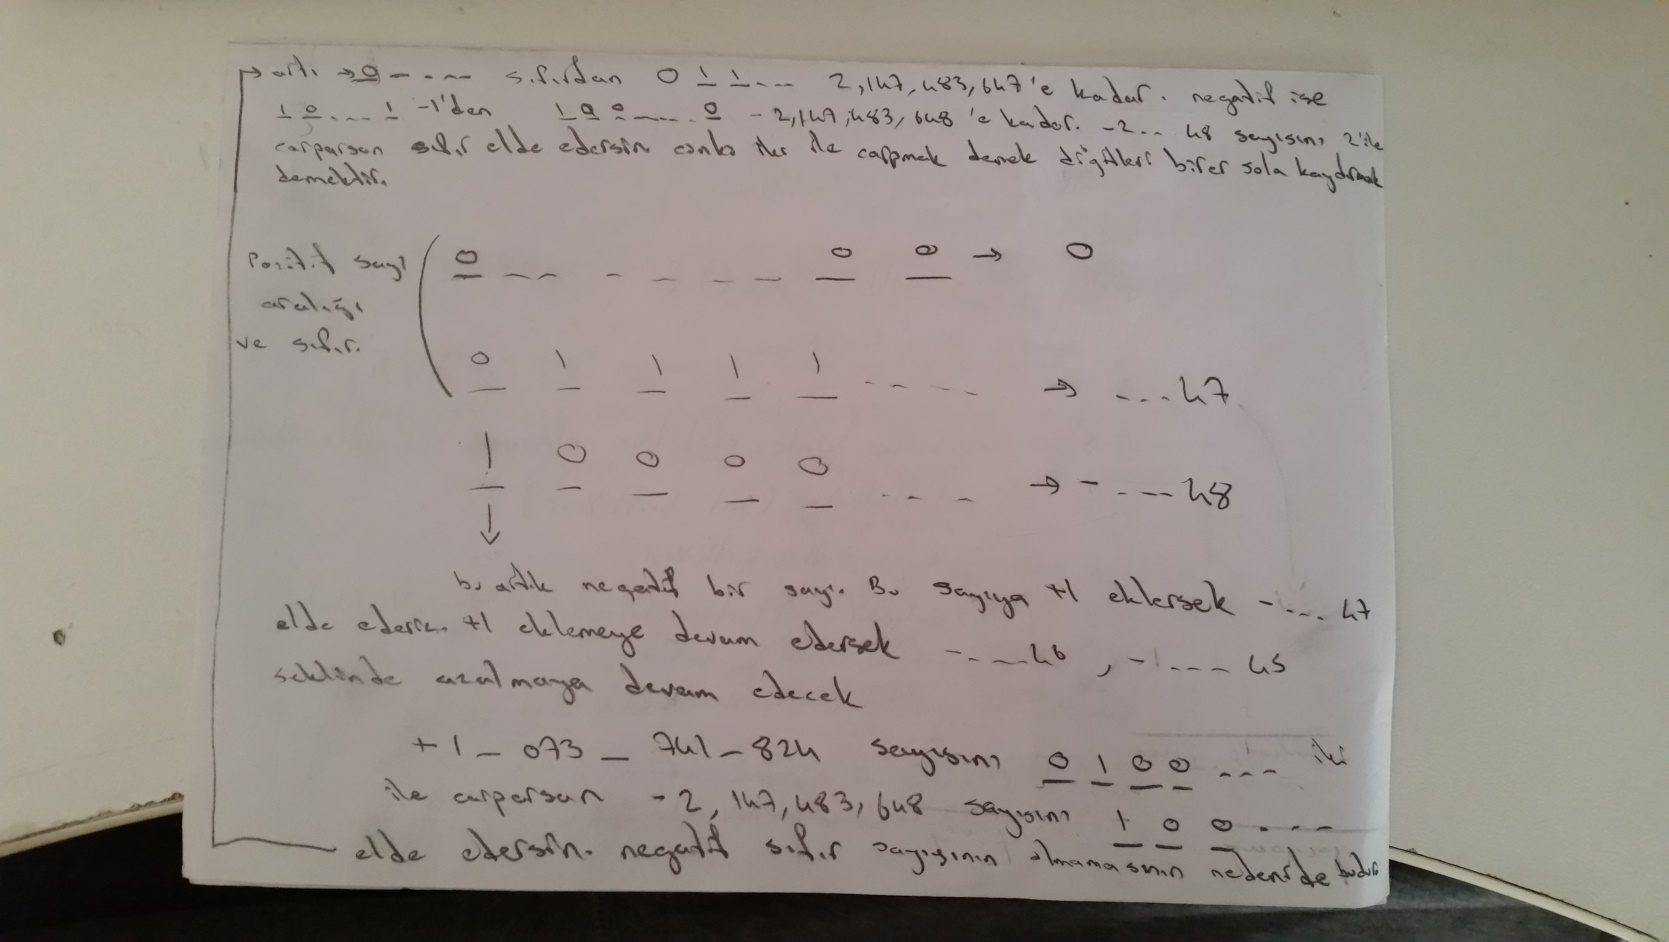 artı → 0 - . -- sıfırdan 0 1 1 -.. 2,147,483,647'e kadar. negatif ise
1 0 .... 1 -1'den 1 0 0 .... 0 -2,147,483,648'e kadar. -2.. 48 sayısını 2 ile
çarparsan sıfır elde edersin çünkü iki ile çarpmak demek digitleri birer sola kaydırmak
demektir.
Pozitif sayı
aralığı
ve sıfır.
0 -- - - - - 0 0 → 0
0 1 1 1 1 ---- → ---.47
1 0 0 0 0 .--- → -.---48
↓
bu artık negatif bir sayı. Bu sayıya +1 eklersek -... 47
elde ederiz. +1 eklemeye devam edersek -.--46, -.---45
şeklinde azalmaya devam edecek
+1_073_741_824 sayısını 0 1 0 0 ... iki
ile çarparsan -2,147,483,648 sayısını 1 0 0 ----
elde edersin. negatif sıfır sayısının olmamasının nedeni de budur